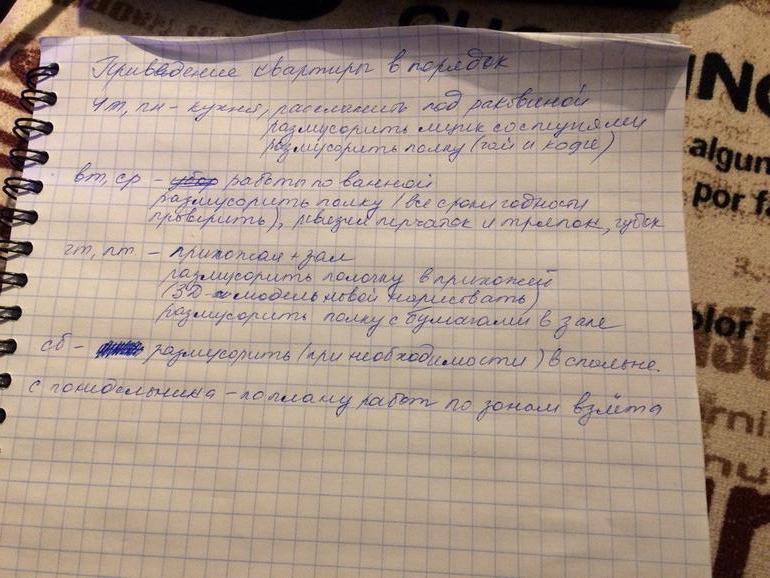 Приведение квартиры в порядок
чт, пн - кухня, расхламить под раковиной
размусорить ящик со специями
размусорить полку (чай и кофе)
вт, ср - убор работы по ванной
размусорить полку (все сроки годности
проверить), ревизия перчаток и тряпок, губок
чт, пт - прихожая + зал
размусорить полочку в прихожей
(3D-модель новой нарисовать)
размусорить полку с бумагами в зале
сб - размусорить (при необходимости) в спальне.
с понедельника - по плану работ по зонам взлёта
algun
por fa
olor.